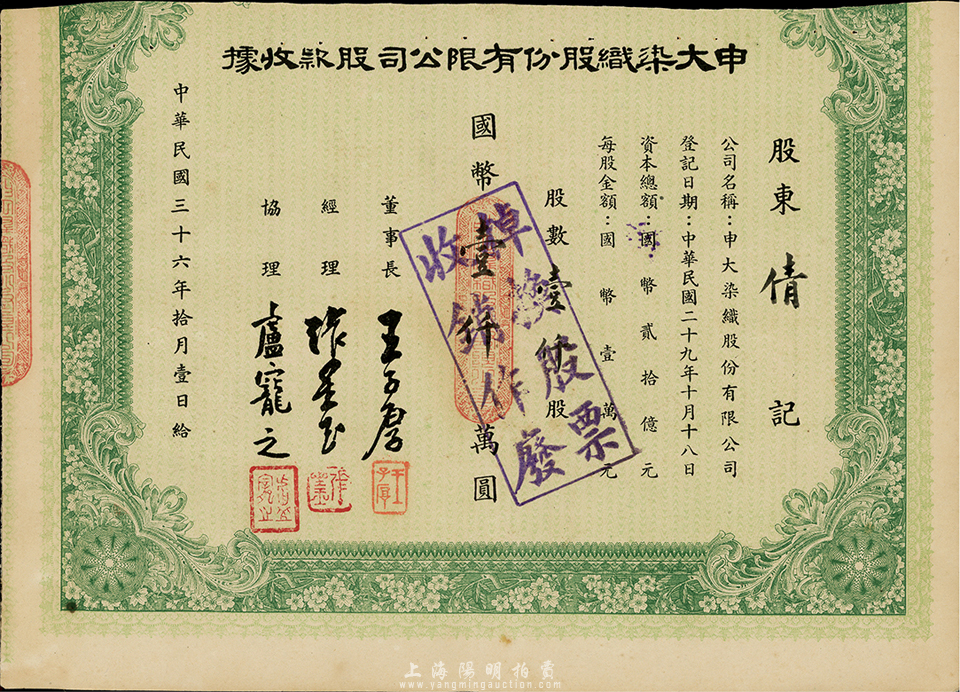 申大染織股份有限公司股款收據
股東 倩 記
公司名稱：申大染織股份有限公司
登記日期：中華民國二十九年十月十八日
資本總額：國幣貳拾億元
每股金額：國幣壹萬元
股數 壹 股
國幣 壹 萬圓
董事長 王子厚
經理
協理 盧寵之
中華民國三十六年拾月壹日給
掉換股票
收據作廢
上海陽明拍賣
www.yangmingauction.com